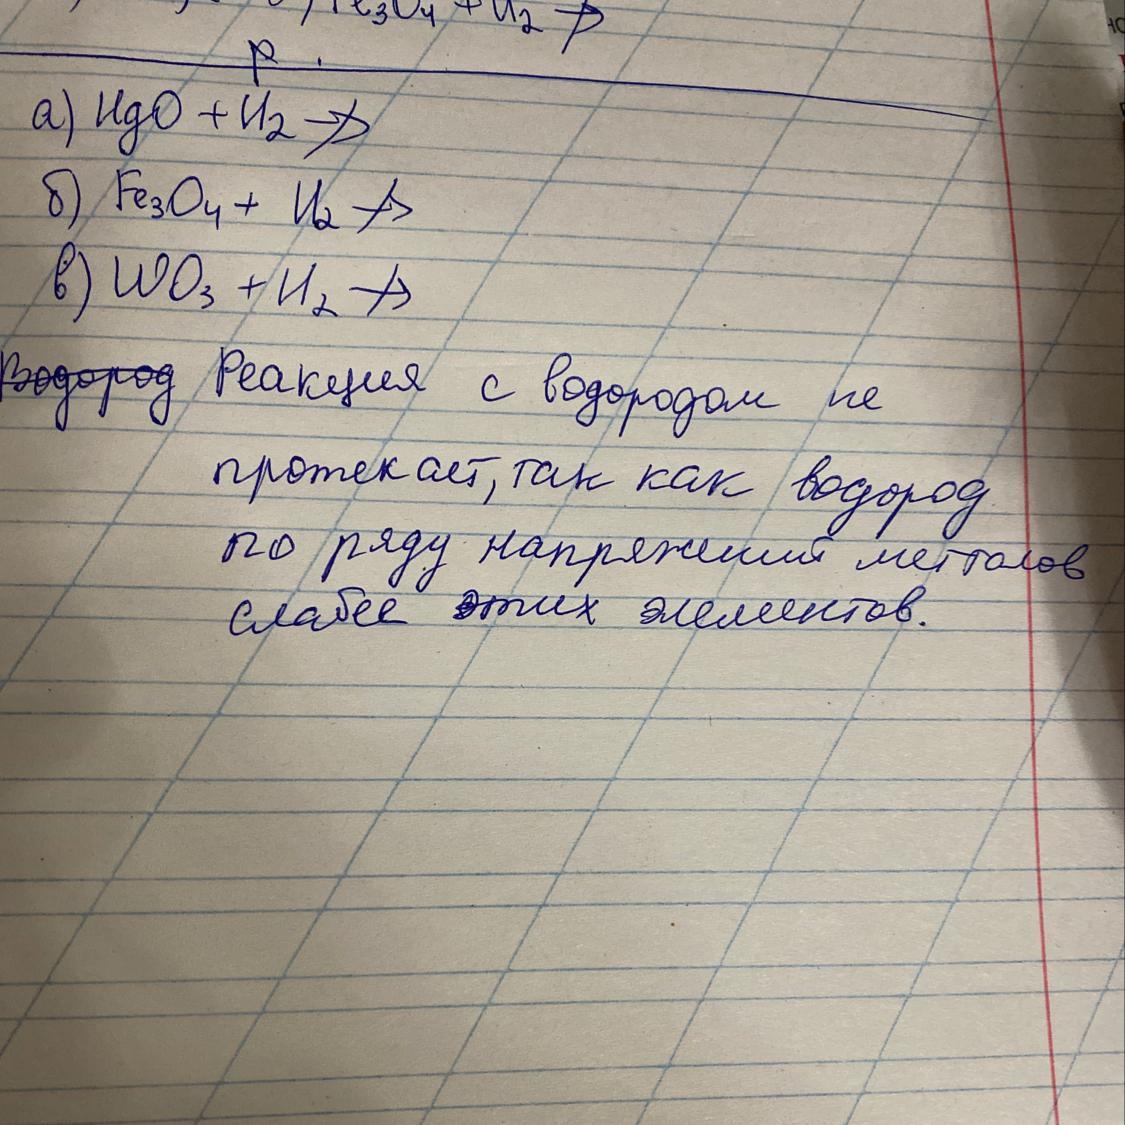 Fe₃O₄ + H₂ ↛
р.
а) HgO + H₂ ↛
б) Fe₃O₄ + H₂ ↛
в) WO₃ + H₂ ↛
Водород Реакция с водородом не
протекает, так как водород
по ряду напряжений металов
слабее этих элементов.